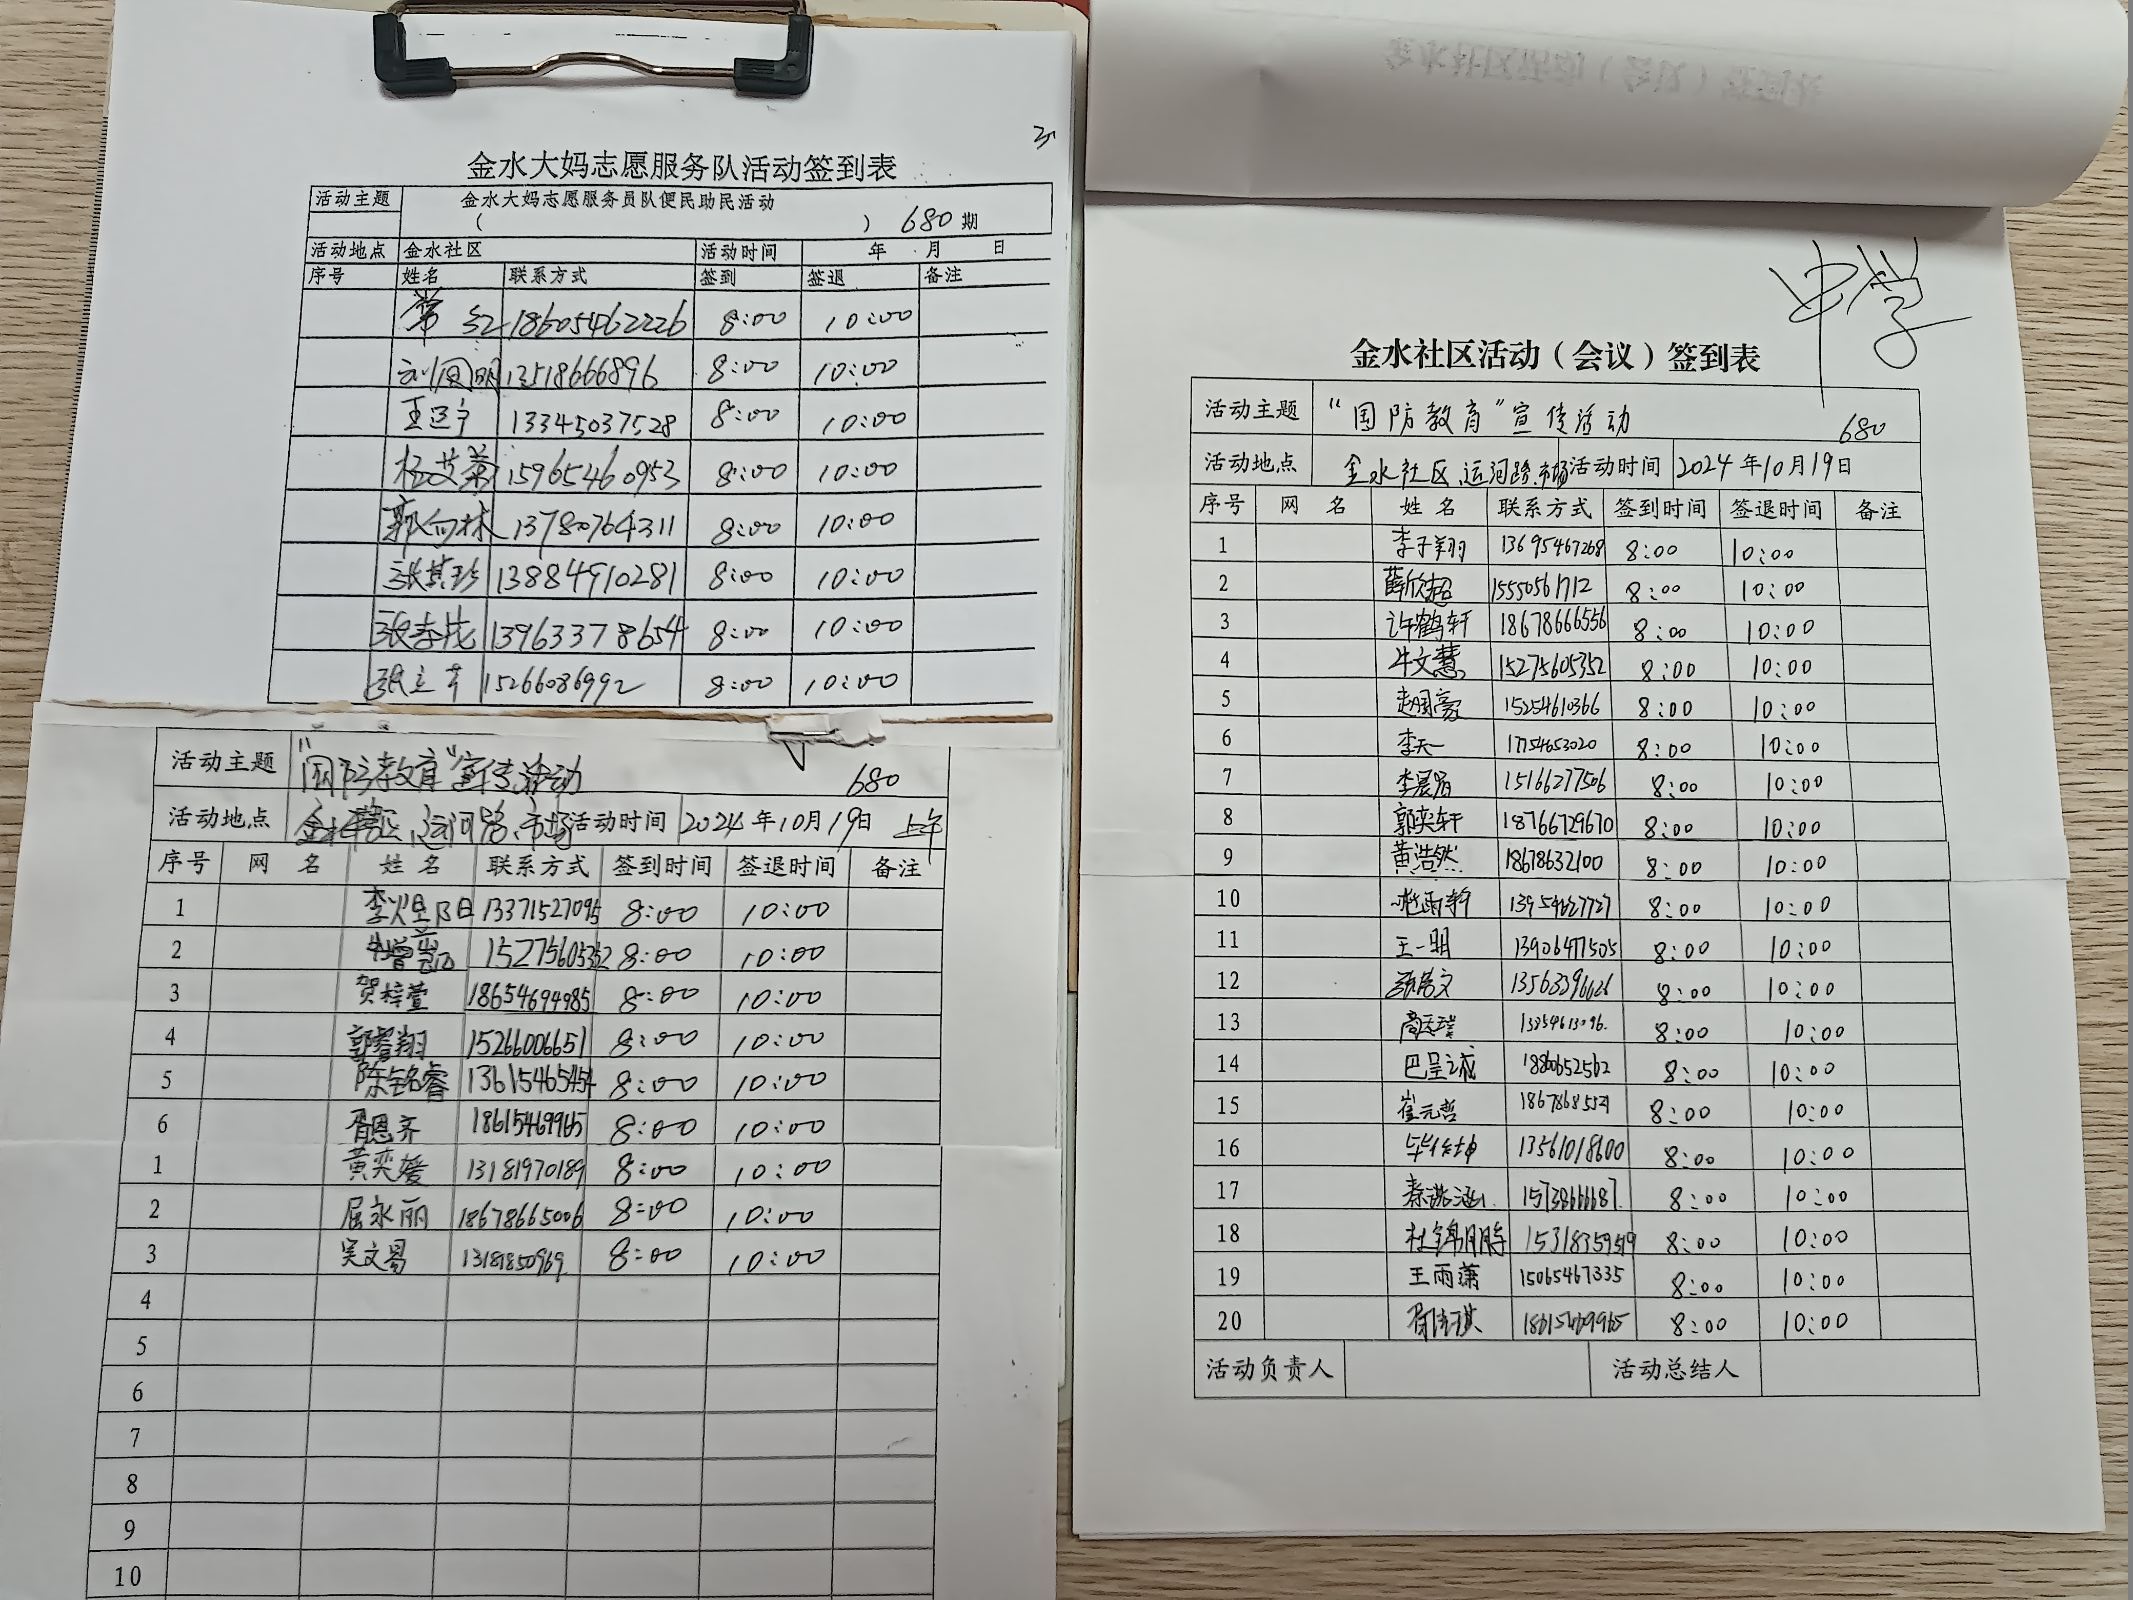 金水大妈志愿服务队活动签到表
活动主题 金水大妈志愿服务员队便民助民活动
( ) 680期
活动地点 金水社区 活动时间 年 月 日
序号 姓名 联系方式 签到 签退 备注
常红 18605462226 8:00 10:00
刘国明 13518666896 8:00 10:00
13345037528 8:00 10:00
杨艾菊 15965460953 8:00 10:00
郭向林 13780764311 8:00 10:00
张其珍 13884910281 8:00 10:00
张春花 13963378654 8:00 10:00
张立芹 15266086992 8:00 10:00
活动主题 "国防教育"宣传活动 680
活动地点 金水社区、运河路、市场 活动时间 2024年10月19日 上午
序号 网名 姓名 联系方式 签到时间 签退时间 备注
1 李煜阳 13371527095 8:00 10:00
2 15275605352 8:00 10:00
3 贺梓萱 18654694985 8:00 10:00
4 郭睿翔 15266006651 8:00 10:00
5 陈铭睿 13615465454 8:00 10:00
6 胥恩齐 18615469965 8:00 10:00
1 黄奕媛 13181970189 8:00 10:00
2 屈永丽 18678665006 8:00 10:00
3 吴文易 13181850969 8:00 10:00
4
5
6
7
8
9
10
中学
金水社区活动（会议）签到表
活动主题 "国防教育"宣传活动 680
活动地点 金水社区、运河路、市场 活动时间 2024年10月19日
序号 网名 姓名 联系方式 签到时间 签退时间 备注
1 李子翔 13695467268 8:00 10:00
2 薛欣超 15550561712 8:00 10:00
3 许鹤轩 18678666556 8:00 10:00
4 牛文慧 15275605352 8:00 10:00
5 赵国豪 15254610366 8:00 10:00
6 李天一 17754653020 8:00 10:00
7 李晨眉 15166277506 8:00 10:00
8 郭奕轩 18766729670 8:00 10:00
9 黄浩然 18678632100 8:00 10:00
10 13954627727 8:00 10:00
11 王一明 13906477505 8:00 10:00
12 8:00 10:00
13 8:00 10:00
14 巴呈诚 1880652562 8:00 10:00
15 崔元哲 8:00 10:00
16 毕佳坤 13561018600 8:00 10:00
17 秦滢涵 8:00 10:00
18 杜锦鹏 8:00 10:00
19 王雨萧 15065467335 8:00 10:00
20 18615469965 8:00 10:00
活动负责人 活动总结人